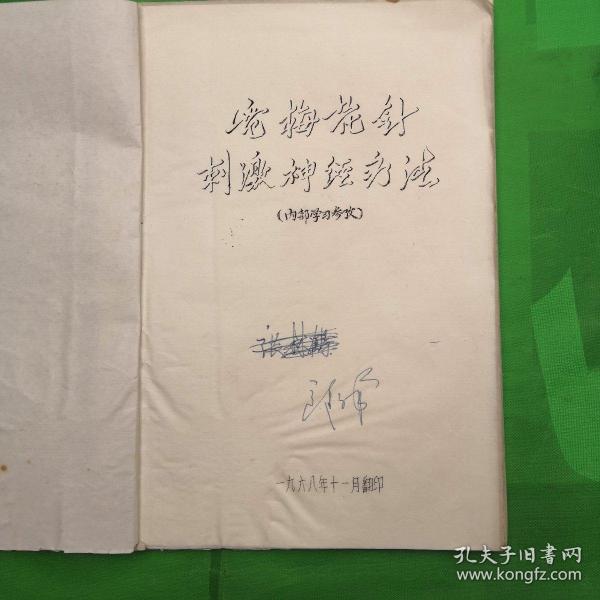 梅花針
刺激神经疗法
(内部学习参攷)
张
一九六八年十一月翻印
孔夫子旧书网
www.kongfz.com